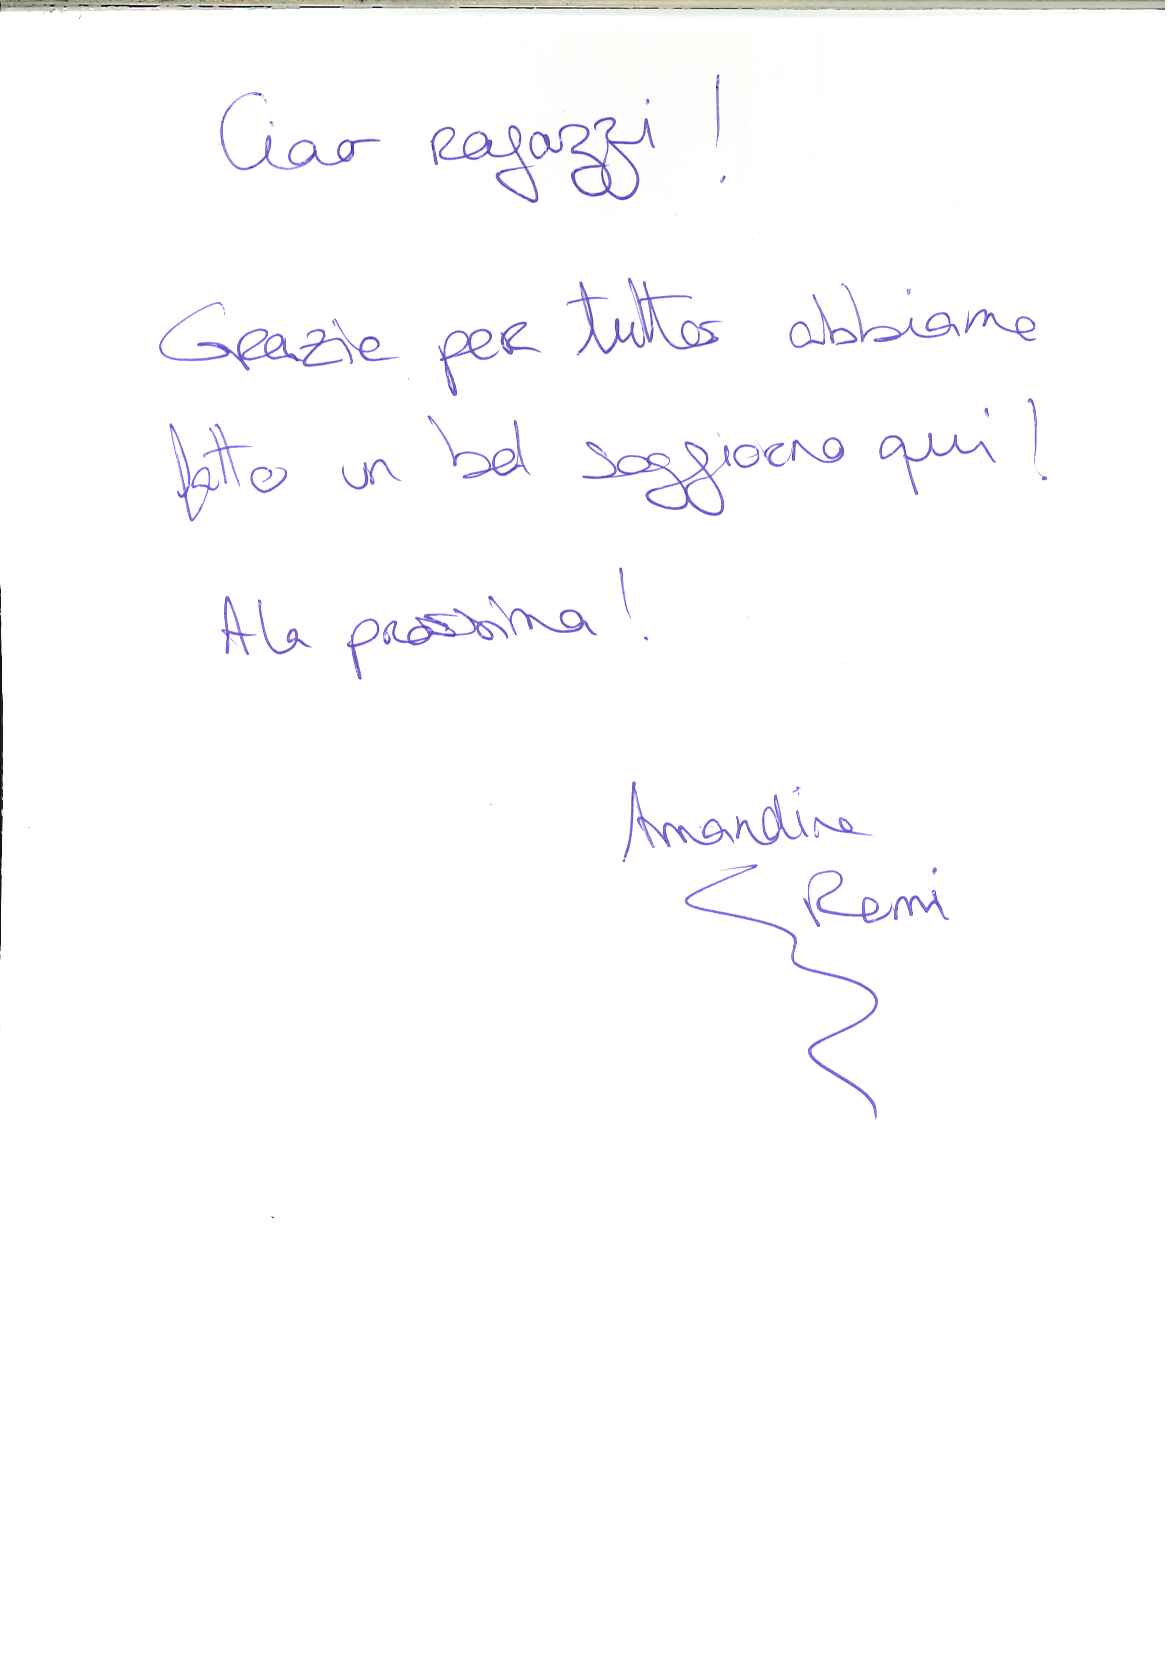 Ciao ragazzi !
Grazie per tutto abbiamo
fatto un bel soggiorno qui !
A la prossima !
Amandine
Remi